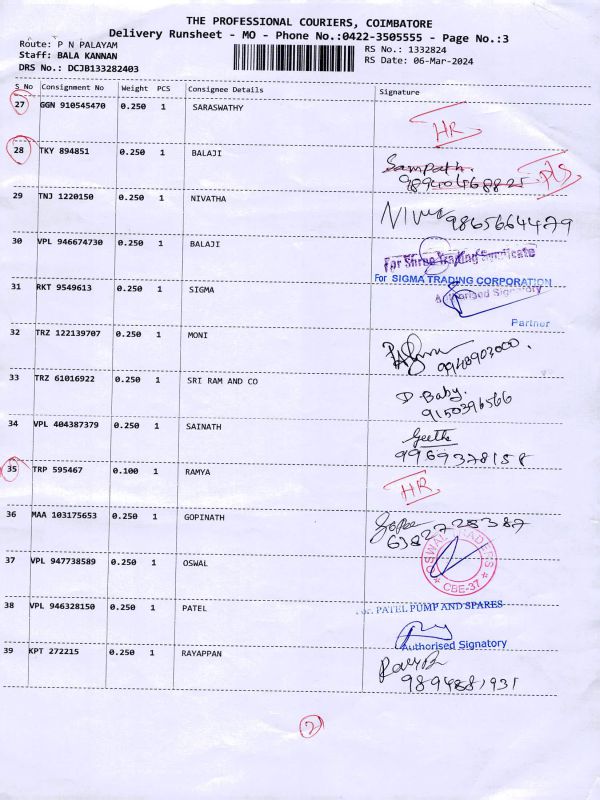 THE PROFESSIONAL COURIERS, COIMBATORE
Delivery Runsheet - MO - Phone No.:0422-3505555 - Page No.:3
Route: P N PALAYAM
RS No.: 1332824
Staff: BALA KANNAN
RS Date: 06-Mar-2024
DRS No.: DCJB133282403
S No Consignment No Weight PCS Consignee Details Signature
27 GGN 910545470 0.250 1 SARASWATHY
HR
28 TKY 894851 0.250 1 BALAJI
Sampath.
29 TNJ 1220150 0.250 1 NIVATHA
9865664479
30 VPL 946674730 0.250 1 BALAJI
For Shree Trading Syndicate
For SIGMA TRADING CORPORATION
31 RKT 9549613 0.250 1 SIGMA
Authorised Signatory
Partner
32 TRZ 122139707 0.250 1 MONI
9948903000.
33 TRZ 61016922 0.250 1 SRI RAM AND CO
D. Baby.
9150396566
34 VPL 404387379 0.250 1 SAINATH
Geetha
9969378158
35 TRP 595467 0.100 1 RAMYA
HR
36 MAA 103175653 0.250 1 GOPINATH
37 VPL 947738589 0.250 1 OSWAL
OSWAL TRADERS
CBE-37
38 VPL 946328150 0.250 1 PATEL
For PATEL PUMP AND SPARES
Authorised Signatory
39 KPT 272215 0.250 1 RAYAPPAN
9894881931
2